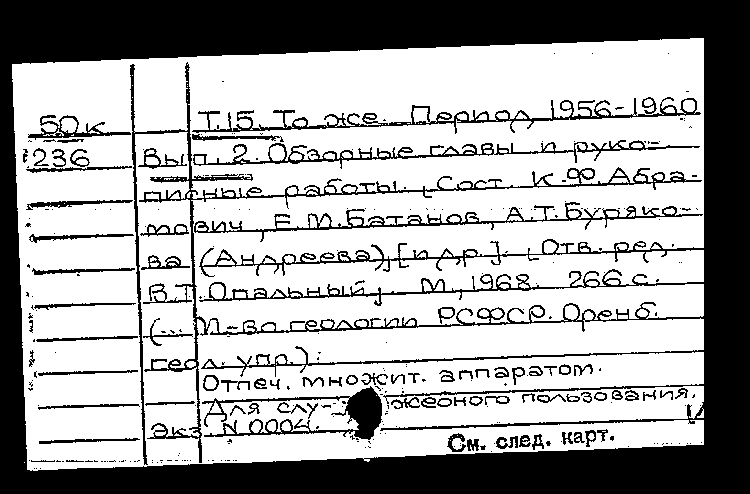 50к Т.15. То же. Период 1956-1960
236 Вып. 2. Обзорные главы и руко-
писные работы. [Сост. К.Ф. Абра-
мович, Е.М. Батанов, А.Т. Буряко-
ва (Андреева), [и др.]. [Отв. ред.
В.Т. Опальный]. М., 1968. 266 с.
(... М-во геологии РСФСР. Оренб.
геол. упр.).
Отпеч. множит. аппаратом.
Для слу- жебного пользования.
Экз N 0004.
См. след. карт.